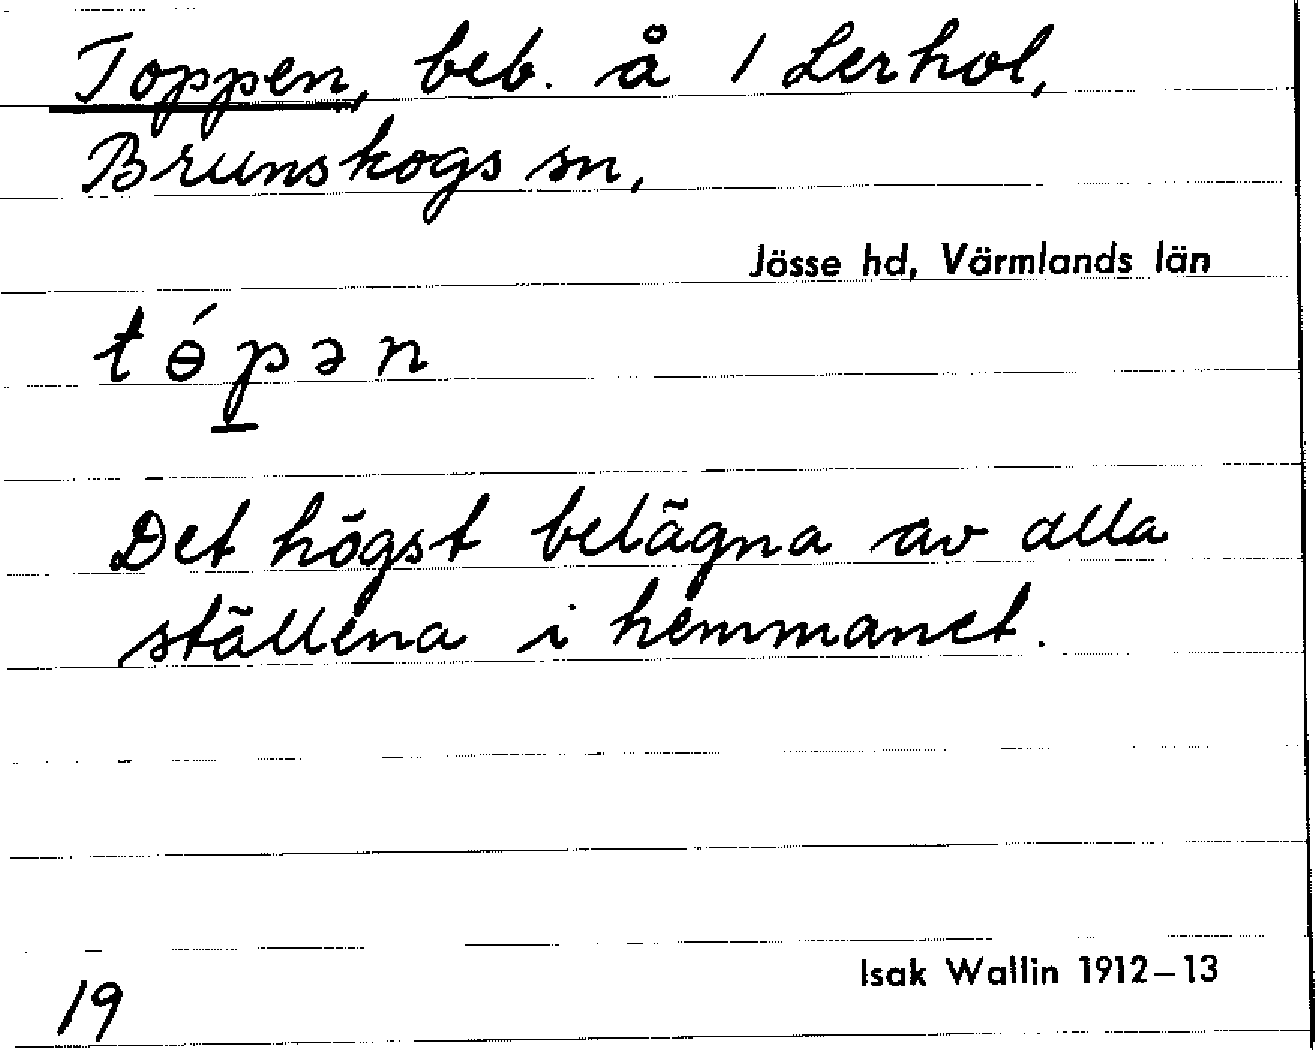 Toppen, beb. å 1 Lerhol,
Brunskogs sn,
Jösse hd, Värmlands län
tɵ́p̲ən
Det högst belägna av alla
ställena i hemmanet.
Isak Wallin 1912–13
19